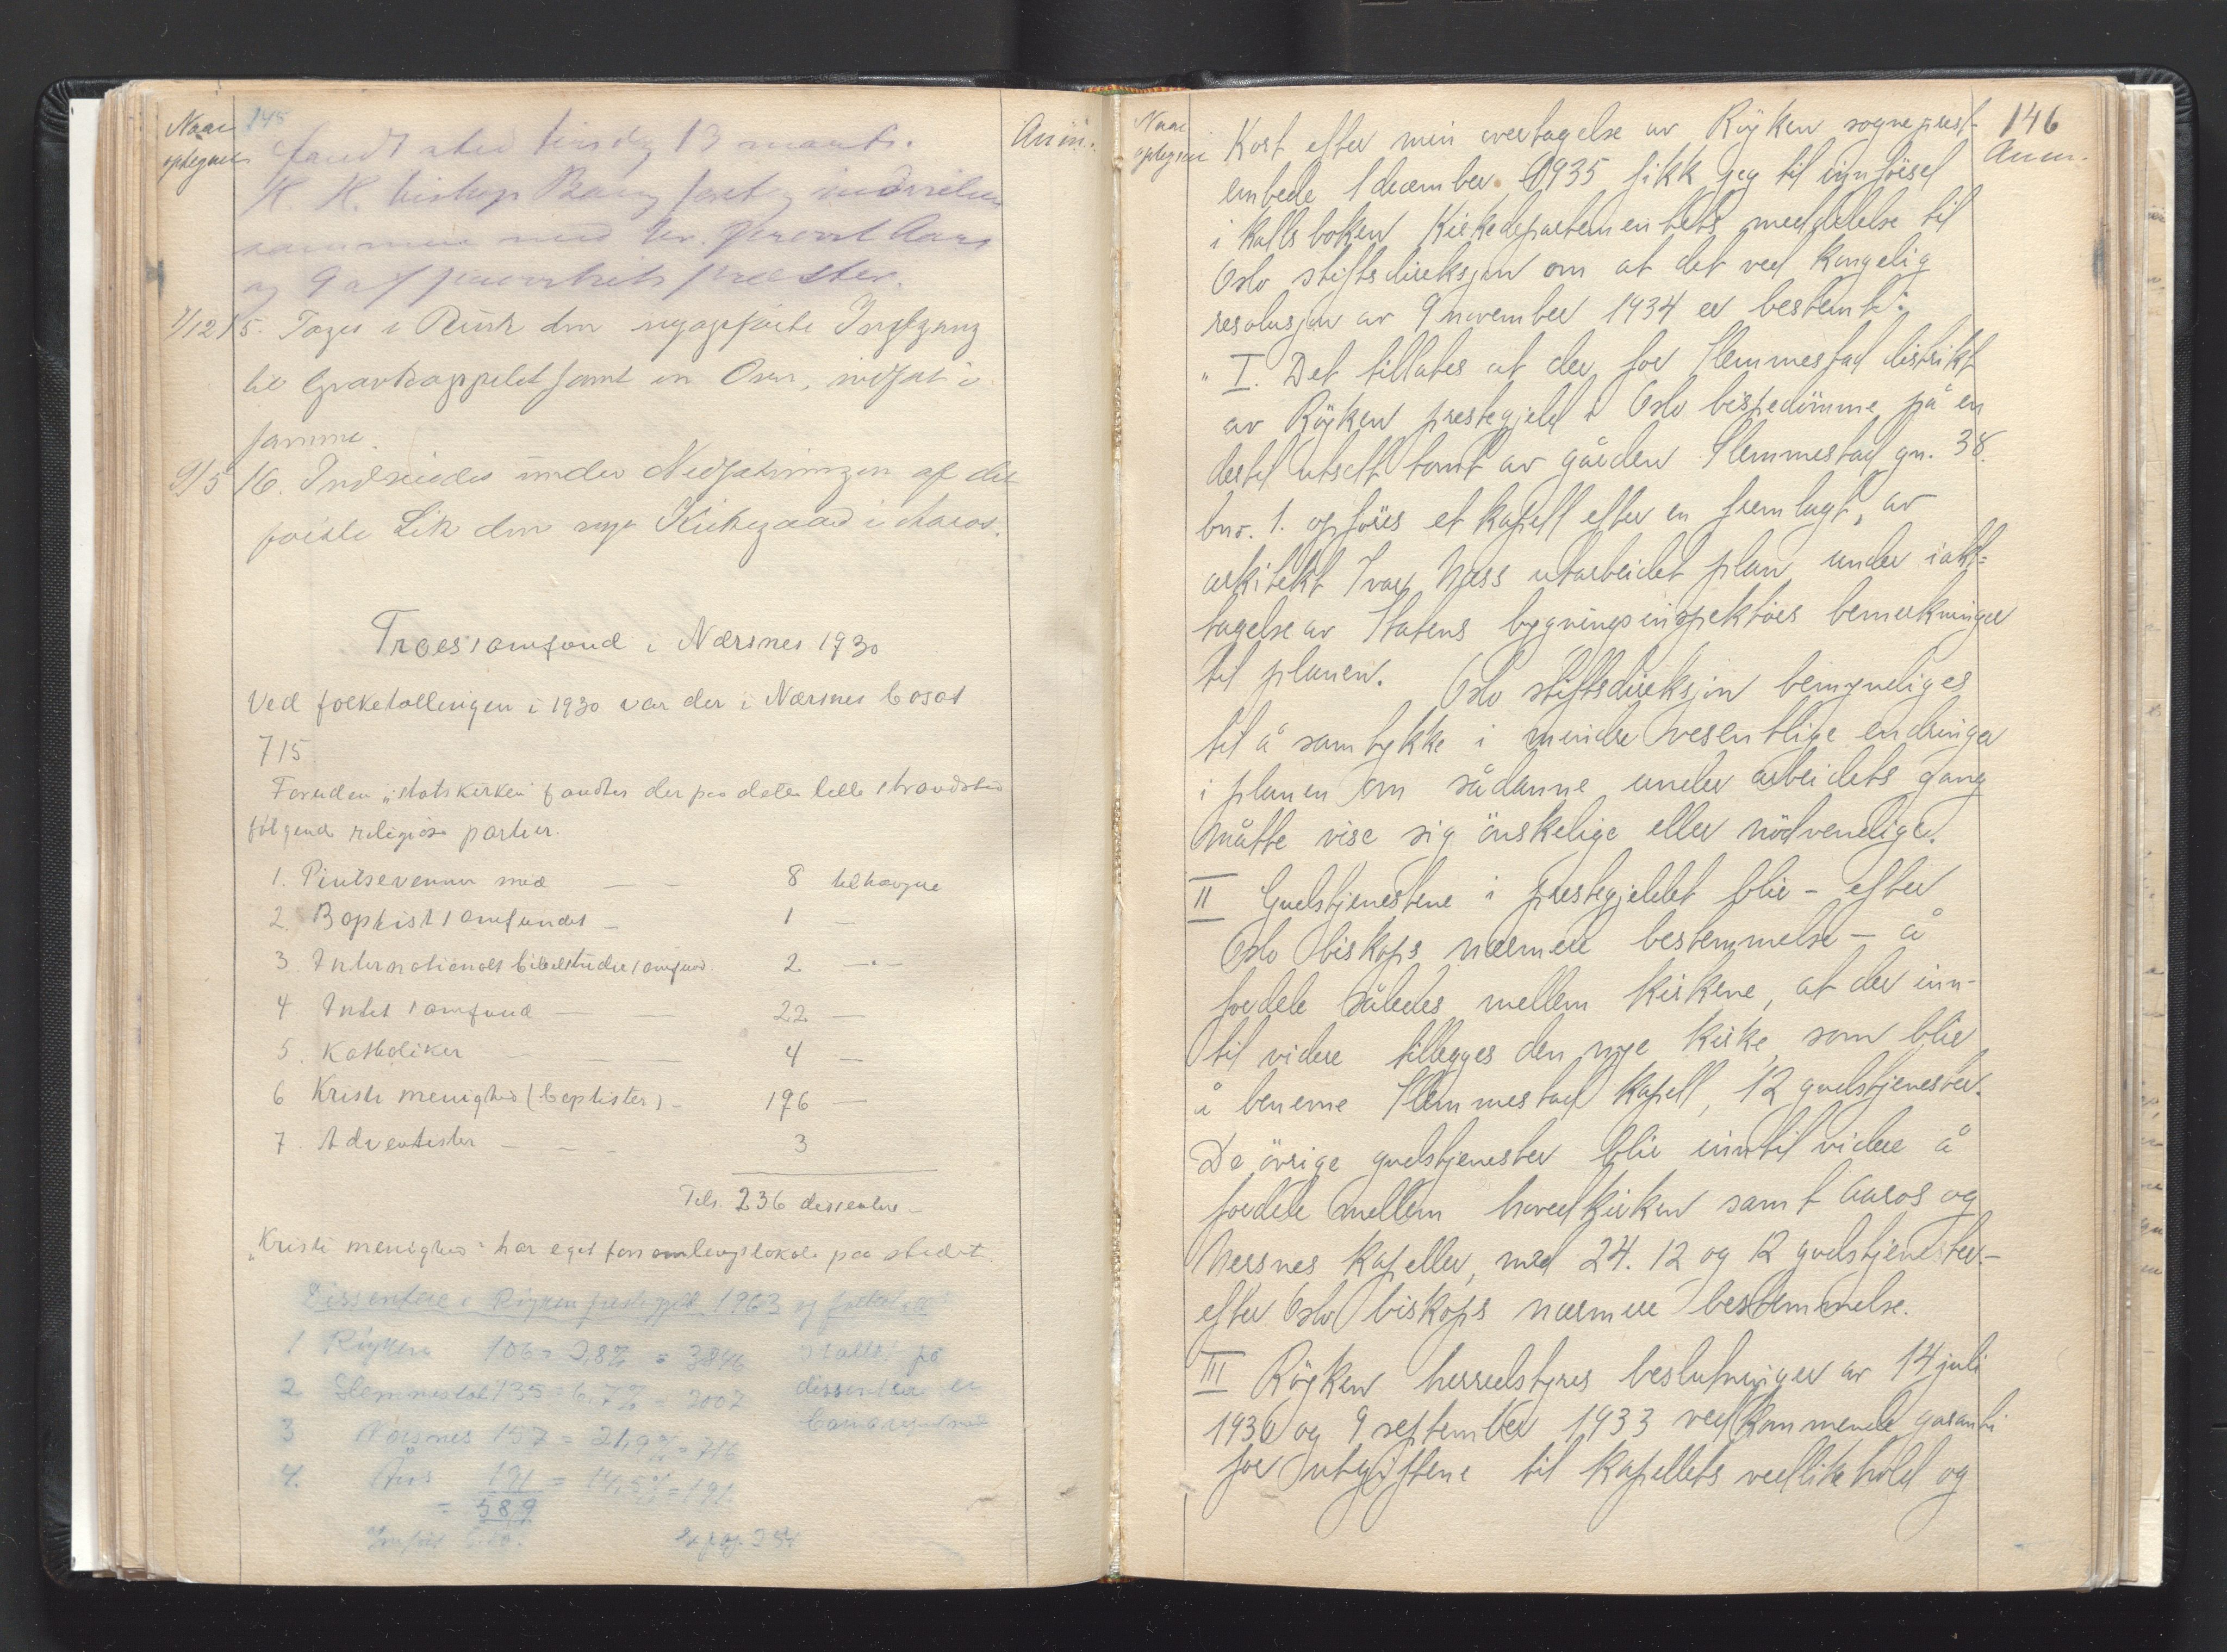 Naar
optegnet
145
Anm.
fandt sted tirsdag 13 marts.
H. H. biskop Bang foretog indvielsen
sammen med hr. provst Aars
og 9 af provstiets prester.
7/12 15. Toges i Brug den nyopførte Indgang
til Gravkappellet samt en Ovn, indsat i
samme.
9/5 16. Indviedes under Nedsættningen af det
første Lik den nye Kirkegaard i Aaros.
Troessamfund i Nærsnes 1930
Ved folketellingen i 1930 var der i Nærsnes bosat
715
Foruden "statskirken" fandtes der paa dette lille strandsted
følgende religiøse partier.
1. Pintsevenner med — — 8 tilhængere
2. Baptistsamfundet — 1 —
3. Internationalt bibelstudiesamfund. 2 — " —
4 Intet samfund — — 22 —
5. Katholiker — — — 4 —
6 Kristi menighed (baptister) — 196 —
7. Adventister — — 3
Tils. 236 dissentere —
"Kristi menighed" har eget forsamlingslokale paa stedet.
Dissentere i Røyken prestegjeld 1963 og folketall
1 Røyken 106 = 2,8% = 3846
2 Slemmestad 135 = 6,7% = 2007
3 Nærsnes 157 = 21,9% = 716
4. Åros 191 = 14,5% = 191
= 589
Tallet på
dissentere er
pag. 254
Naar
optegnet
146
Anm.
Kort efter min overtagelse av Røyken sogneprest-
embede 1 december 1935 fikk jeg til innførsel
i kallsboken Kirkedepartementets meddelelse til
Oslo stiftsdireksjon om at det ved kongelig
resolusjon av 9 november 1934 er bestemt:
" I. Det tillates at der for Slemmestad distrikt
av Røyken prestegjeld i Oslo bispedømme på en
dertil utsett tomt av gården Slemmestad gn. 38.
bnr. 1. opføres et kapell efter en fremlagt, av
arkitekt Ivar Næss utarbeidet plan under iakt-
tagelse av Statens bygningsinspektørs bemerkninger
til planen. Oslo stiftsdireksjon bemyndiges
til å samtykke i mindre vesentlige endringer
i planen om sådanne under arbeidets gang
måtte vise sig ønskelige eller nødvendige.
II Gudstjenestene i prestegjeldet blir - efter
Oslo biskops nærmere bestemmelse - å
fordele således mellem kirkene, at der inn-
til videre tillegges den nye kirke, som blir
å benevne Slemmestad kapell, 12 gudstjenester.
De øvrige gudstjenester blir inntil videre å
fordele mellem hovedkirken samt Aaros og
Nersnes kapeller, med 24. 12 og 12 gudstjenester -
efter Oslo biskops nærmere bestemmelse.
III Røyken herredstyres beslutninger av 14 juli
1930 og 9 september 1933 vedkommende garanti
for utgiftene til kapellets vedlikehold og